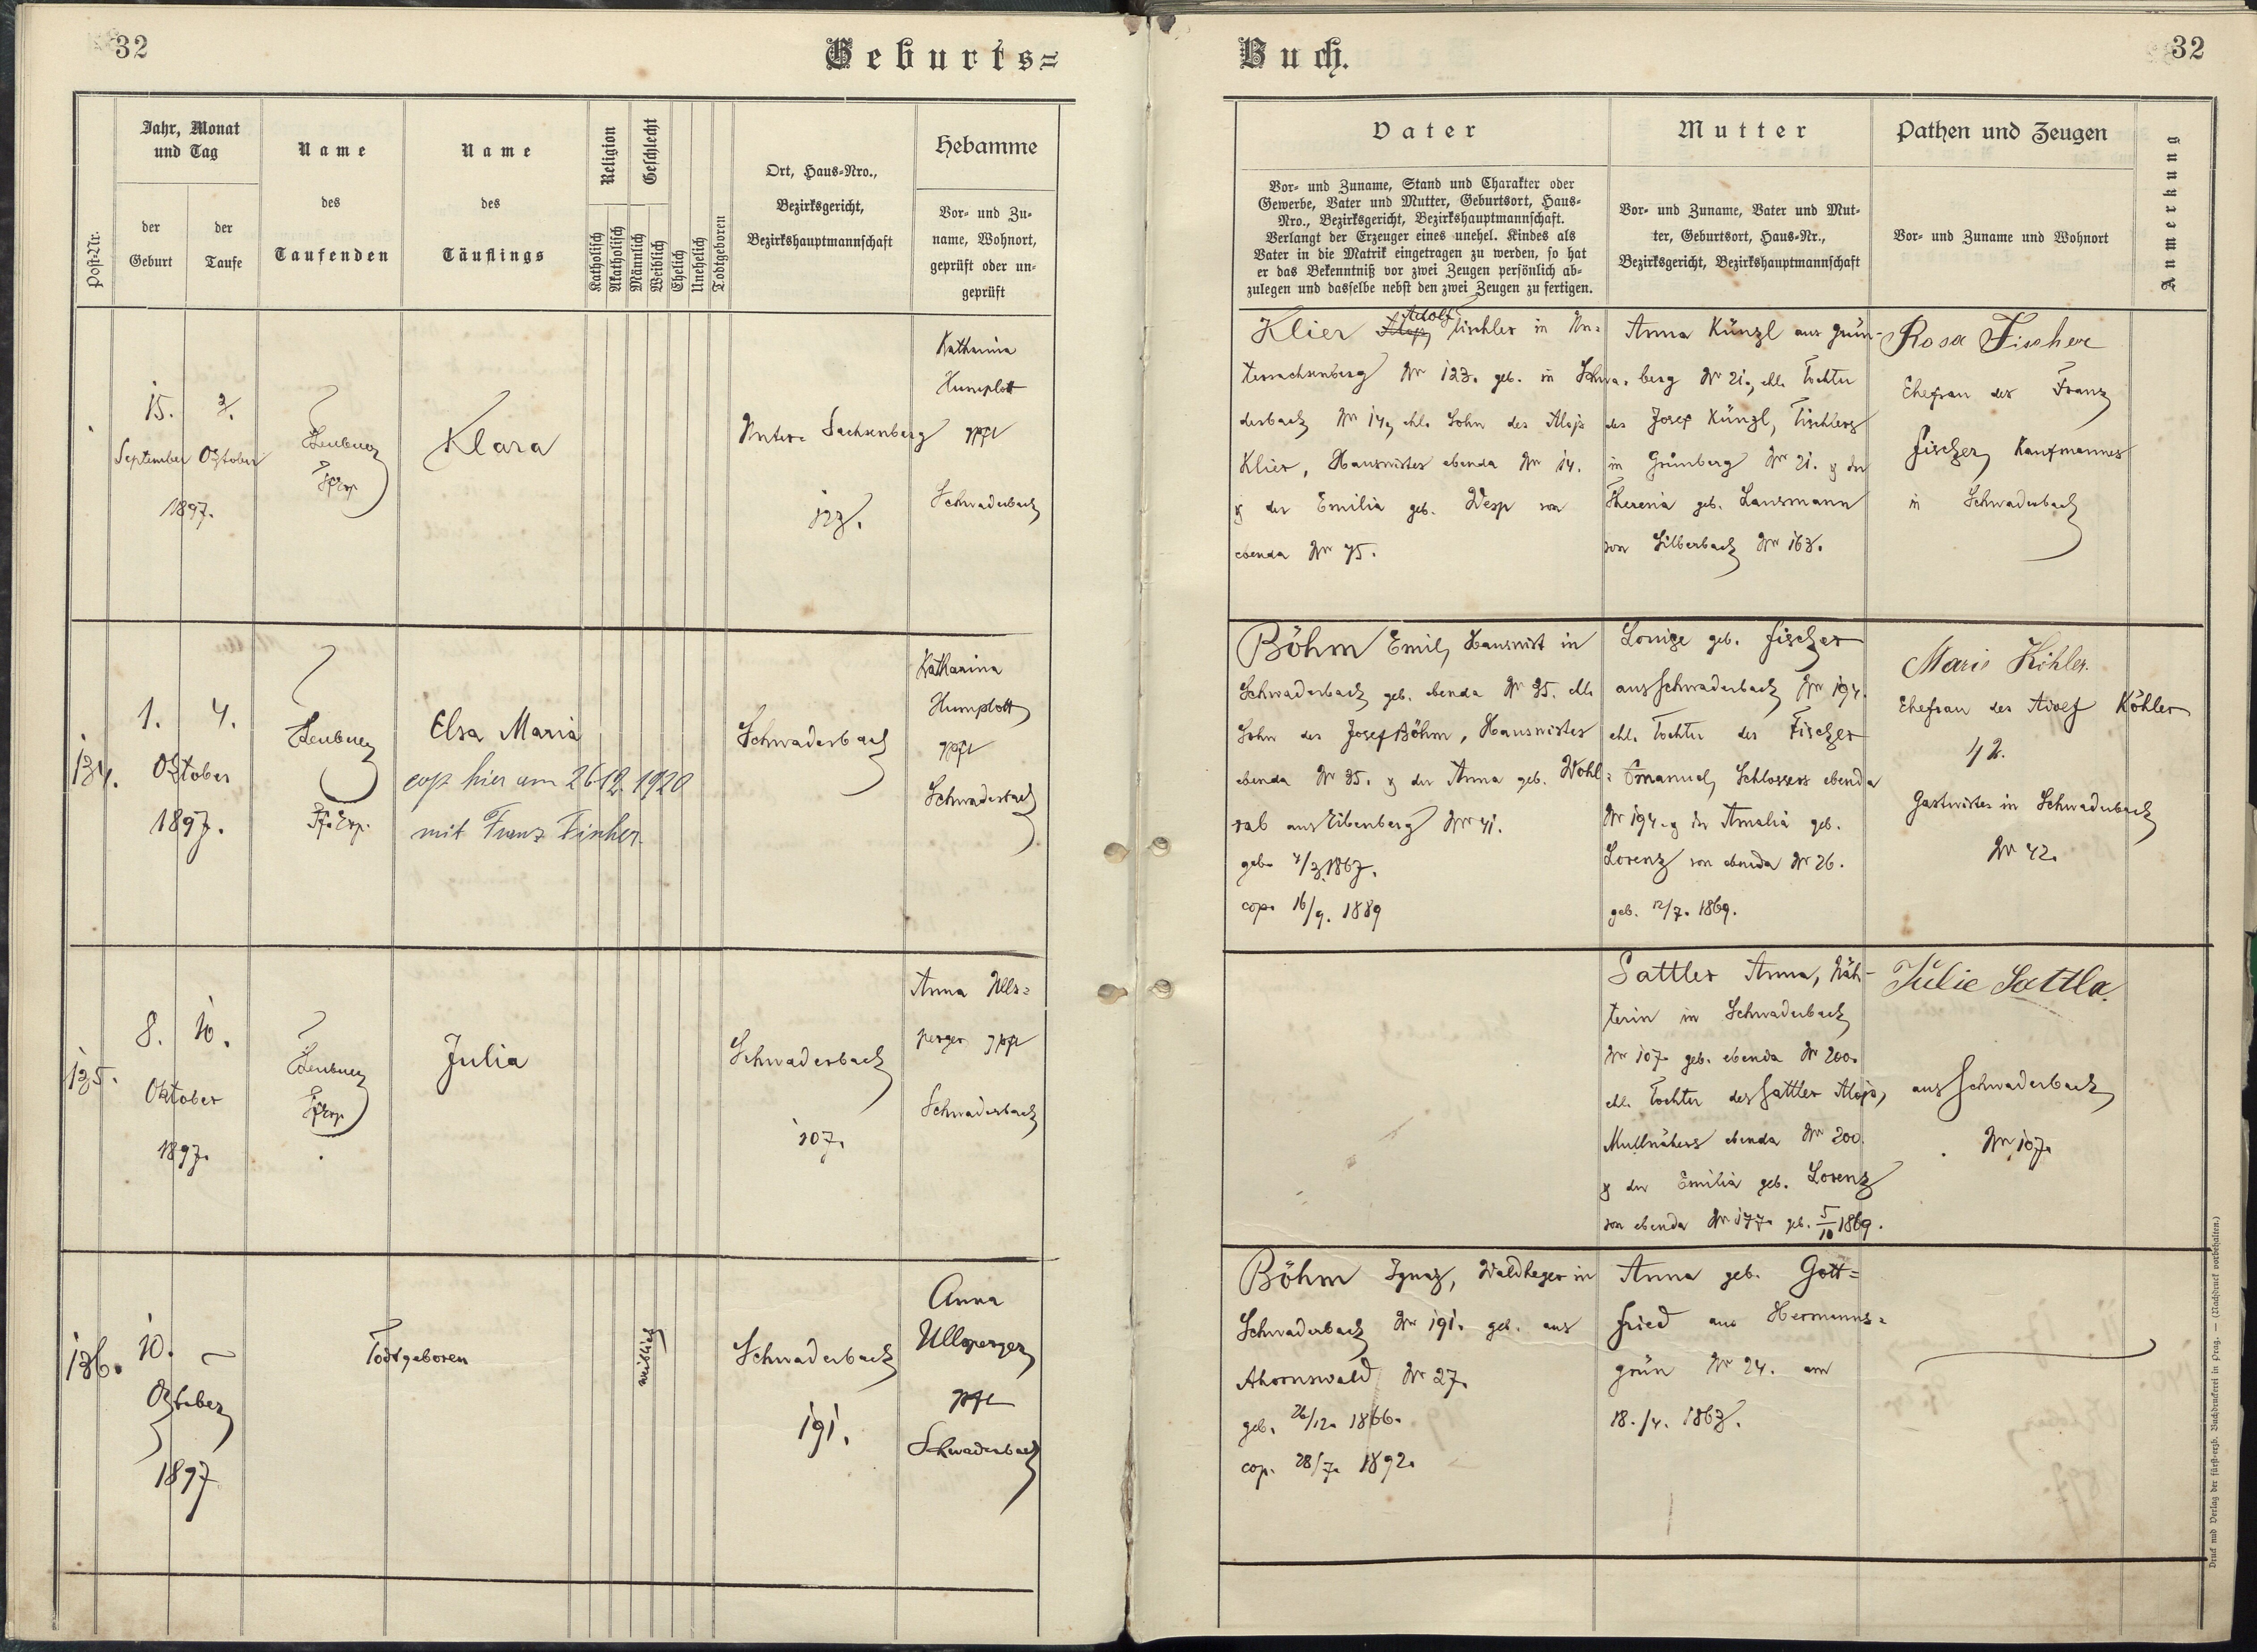 32
Geburts=
Jahr, Monat
und Tag
der
Geburt
der
Taufe
Post-Nr.
Name
des
Taufenden
Name
des
Täuflings
Religion
Geschlecht
Katholisch
Akatholisch
Männlich
Weiblich
Ehelich
Unehelich
Todtgeboren
Ort, Haus-Nro.,
Bezirksgericht,
Bezirkshauptmannschaft
Hebamme
Vor- und Zu-
name, Wohnort,
geprüft oder un-
geprüft
15. 3.
September Oktober
1897.
Klara
Unter-Sachsenberg
123.
Katharina
Humplott
gpft
Schwaderbach
134.
1. 4.
Oktober
1897.
Elsa Maria
cop hier am 26 12. 1920
mit Franz Fischer
Schwaderbach
Katharina
Humplott
gpft
Schwaderbach
135.
8. 10.
Oktober
1897.
Julia
Schwaderbach
107.
Anna Ulls=
perger gpft
Schwaderbach
136.
10. –
Oktober
1897
Todtgeboren
Schwaderbach
191.
Anna
Ullsperger
gpft
Schwaderbach
Buch.
32
Vater
Vor- und Zuname, Stand und Charakter oder
Gewerbe, Vater und Mutter, Geburtsort, Haus-
Nro., Bezirksgericht, Bezirkshauptmannschaft.
Verlangt der Erzeuger eines unehel. Kindes als
Vater in die Matrik eingetragen zu werden, so hat
er das Bekenntniß vor zwei Zeugen persönlich ab-
zulegen und dasselbe nebst den zwei Zeugen zu fertigen.
Mutter
Vor- und Zuname, Vater und Mut-
ter, Geburtsort, Haus-Nr.,
Bezirksgericht, Bezirkshauptmannschaft
Pathen und Zeugen
Vor- und Zuname und Wohnort
Anmerkung
Adolf
Klier Alois Tischler in Un=
tersachsenberg Nr 123. geb. in Schwa=
derbach Nr 14, ehl. Sohn des Alois
Klier, Hauswirtes ebenda Nr 14.
& der Emilia geb. Wesp von
ebenda Nr 75.
Anna Künzl aus Grün-
berg Nr 21, ehl. Tochter
des Josef Künzl, Tischlers
in Grünberg Nr 21. & der
Theresia geb. Lausmann
von Silberbach Nr 163.
Rosa Fischer
Ehefrau des Franz
Fischer, Kaufmannes
in Schwaderbach
Böhm Emil, Hauswirt in
Schwaderbach geb. ebenda Nr 35. ehl.
Sohn des Josef Böhm, Hauswirtes
ebenda Nr 35. & der Anna geb. Wohl=
rab aus Eibenberg Nr 41.
geb. 4/3. 1867.
cop. 16/9. 1889
Louise geb. Fischer
aus Schwaderbach Nr 194.
ehl. Tochter des Fischer
Emanuel, Schlossers ebenda
Nr 194. & der Amalia geb.
Lorenz von ebenda Nr 26.
geb. 12/7. 1869.
Marie Köhler
Ehefrau des Adolf Köhler
42.
Gastwirtes in Schwaderbach
Nr 42.
Sattler Anna, Näh-
terin in Schwaderbach
Nr 107. geb. ebenda Nr 200.
ehl. Tochter des Sattler Alois,
Mullnähers ebenda Nr 200.
& der Emilia geb. Lorenz
von ebenda Nr 177. geb. 5/10 1869.
Julie Sattler
aus Schwaderbach
Nr 107.
Böhm Ignaz, Waldheger in
Schwaderbach Nr 191. geb. aus
Ahornswald Nr 27.
geb. 26/12. 1866.
cop. 28/7. 1892.
Anna geb. Gott=
fried aus Hermanns=
grün Nr 24. am
18./4. 1863.
Druck und Verlag der fürst-erzb. Buchdruckerei in Prag. — (Nachdruck vorbehalten.)